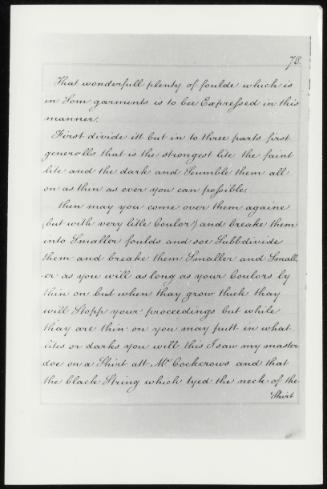 78.
That wonderfull plenty of foulde which is
in Som garments is to bee Expressed in this
manner.
First divide itt but in to three parts first
generolls that is the strongest lite the faint
lite and the dark and Scumble them all
on as thin as ever you can possible.
then may you come over them againe
(but with very litle Coulor) and breake them
into Smaller foulds and soe Subbdivide
them and breake them Smaller and Small-
er as you will as long as your Coulors ly
thin on but when thay grow thick thay
will Stopp your proceedings but while
thay are thin on you may putt in what
lites or darks you will this I saw my master
doe on a Shirt att Mr Cockcrows and that
the black String which tyed the neck of the
Shirt